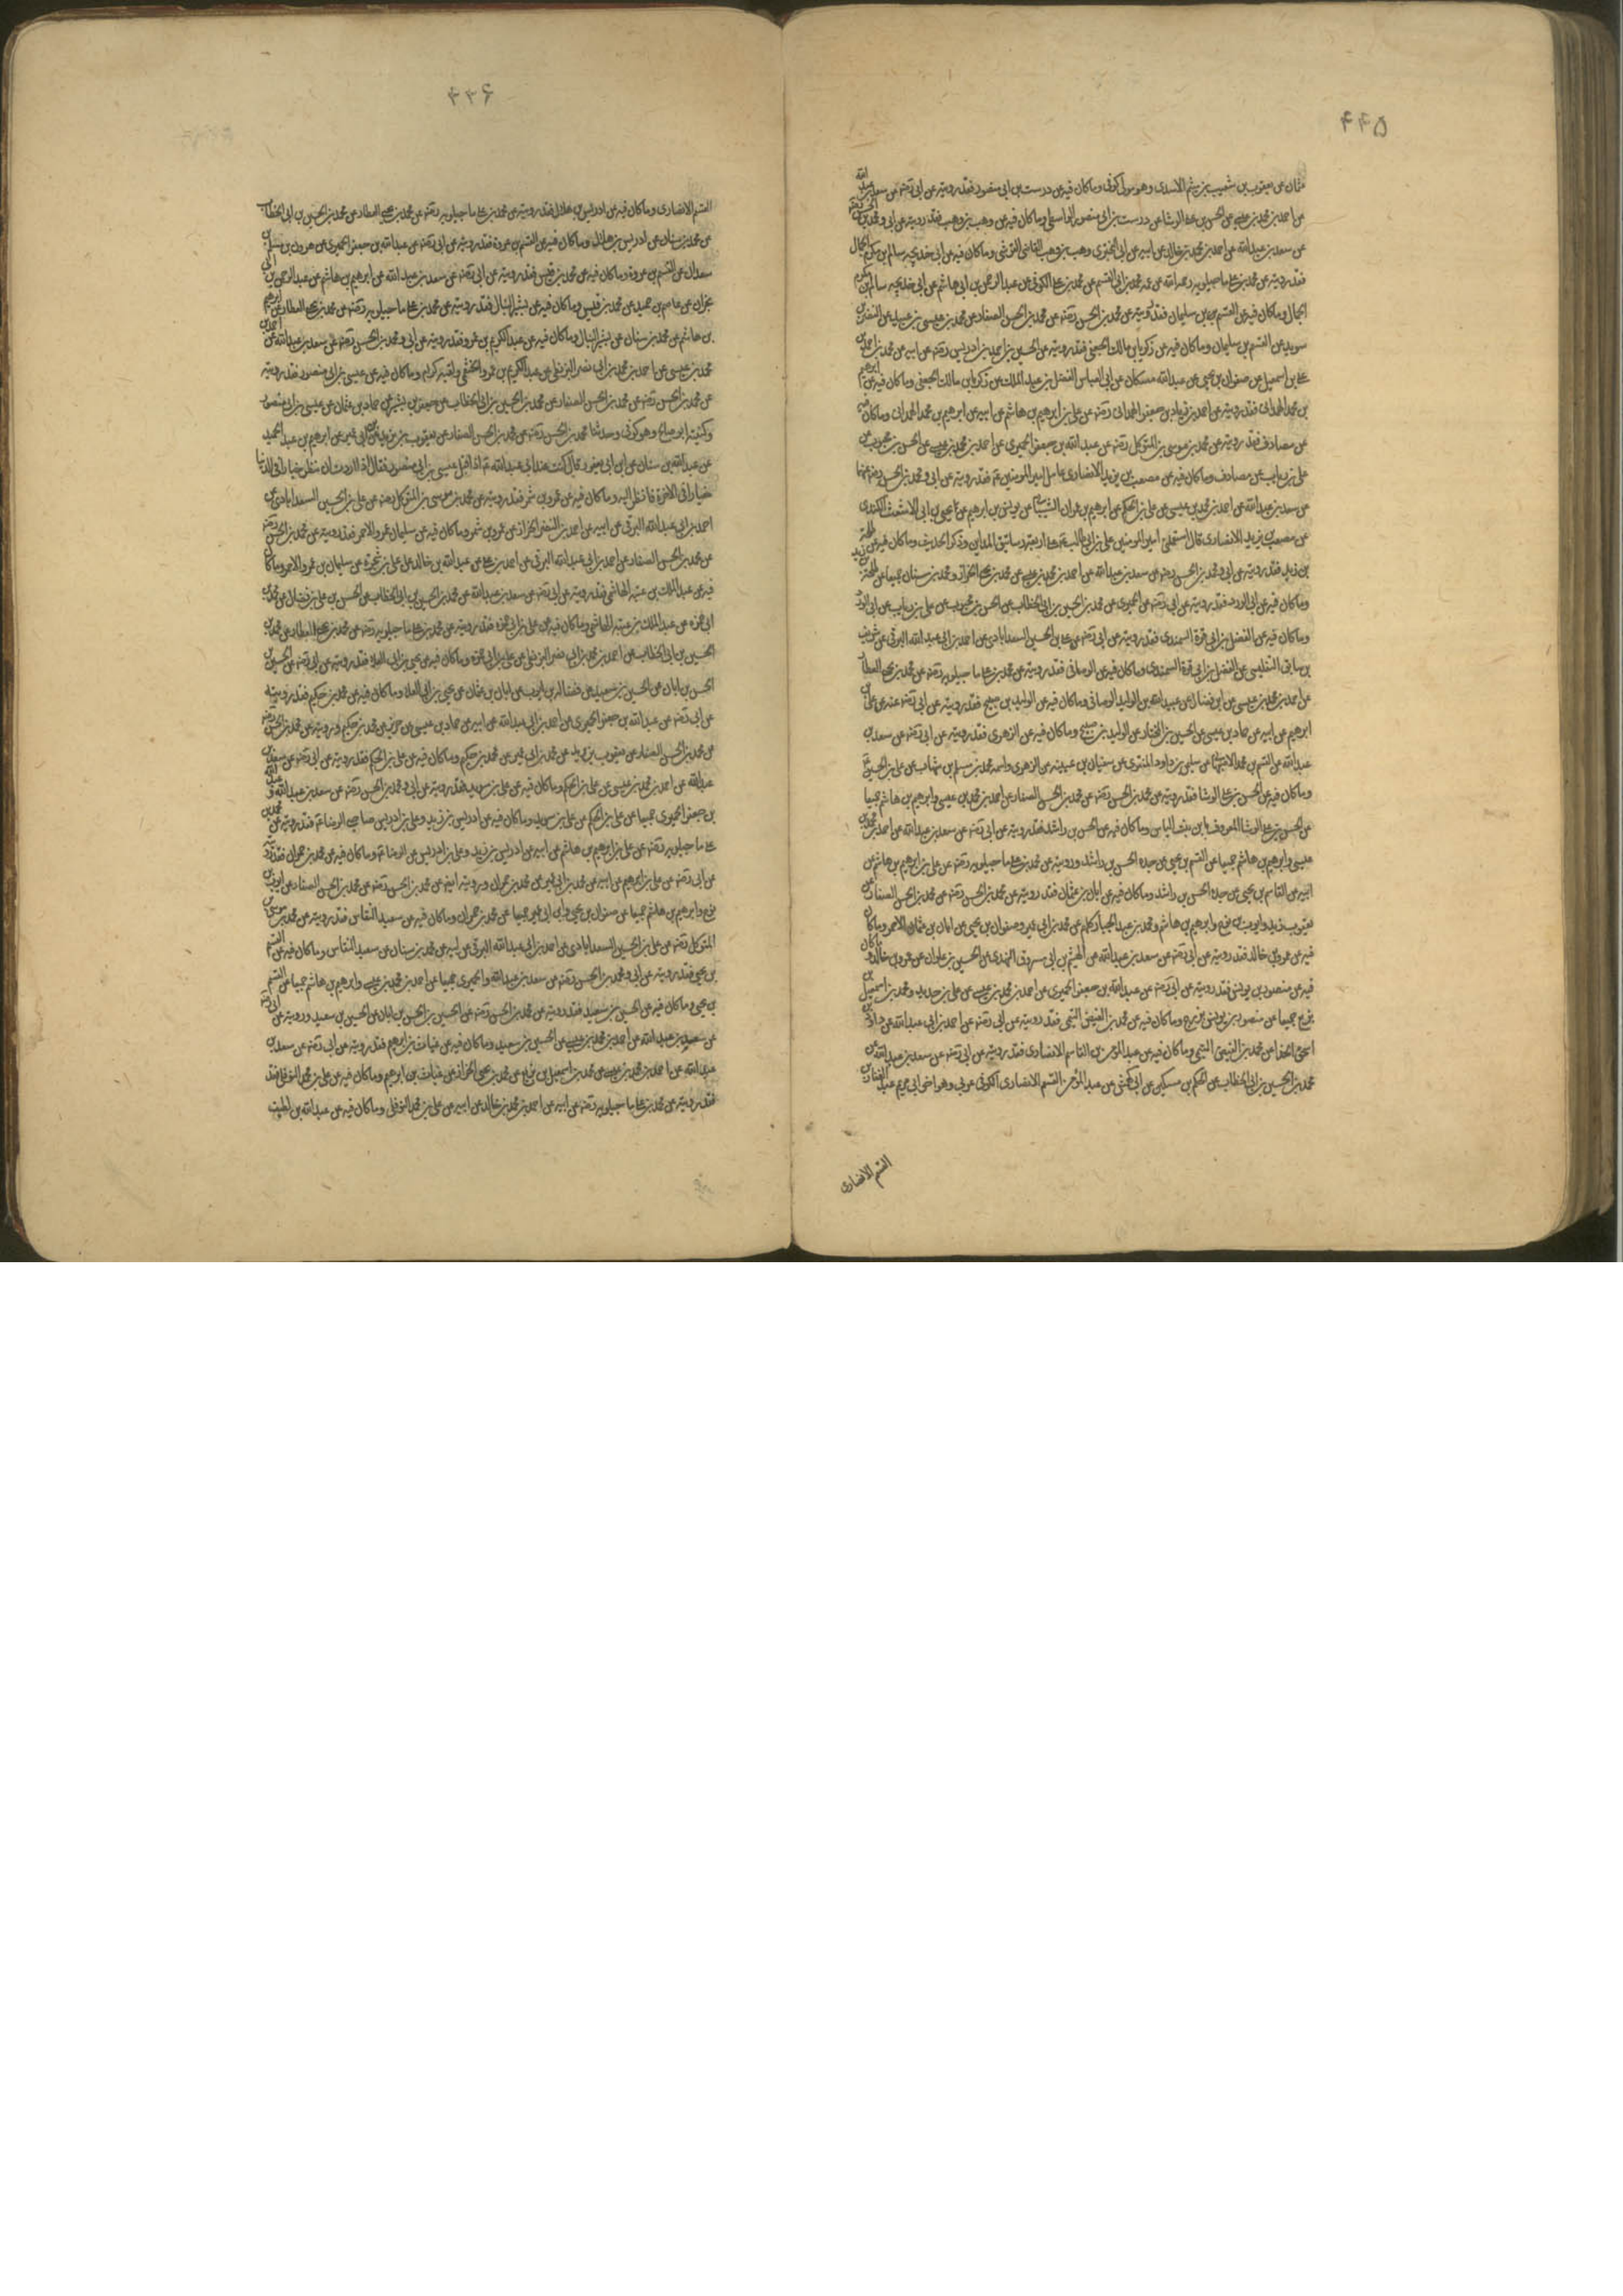 ۴۴۵
عثمان عن يعقوب بن شعيب بن ميثم الاسدى وهو مولى كوفى وماكان فيه عن درست بن ابى منصور فقد رويته عن ابى رضى عن سعد بن عبد الله
عن احمد بن محمد بن عيسى عن الحسن بن على الوشا عن درست بن ابى منصور الواسطى وماكان فيه عن وهب بن وهب فقد رويته عن ابى ومحمد بن الحسن رضى
عن سعد بن عبدالله عن احمد بن محمد بن خالد عن ابيه عن ابى البخترى وهب بن وهب القاضى القرشى وماكان فيه عن ابى خديجه سالم بن مكرم الجمال
فقد رويته عن محمد بن على ماجيلويه رحمه الله عن عمه محمد بن ابى القسم عن محمد بن على الكوفى عن عبد الرحمن بن ابى هاشم عن ابى خديجه سالم بن مكرم
الجمال وماكان فيه عن القسم بن سليمان فقد رويته عن محمد بن الحسن رضى عن محمد بن الحسن الصفار عن محمد بن عيسى بن عبيد عن النضر بن
سويد عن القسم بن سليمان وماكان فيه عن زكريا بن مالك الجعفى فقد رويته عن الحسين بن احمد بن ادريس رضى عن ابيه عن محمد بن احمد عن
على بن اسمعيل عن صفوان بن يحيى عن عبدالله مسكان عن ابى العباس الفضل بن عبد الملك عن زكريا بن مالك الجعفى وماكان فيه عن ابرهيم
بن محمد الهمدانى فقد رويته عن احمد بن زياد بن جعفر الهمدانى رضى عن على بن ابرهيم بن هاشم عن ابيه عن ابرهيم بن محمد الهمدانى وماكان فيه
عن مصادف فقد رويته عن محمد بن موسى بن المتوكل رضى عن عبد الله بن جعفر الحميرى عن احمد بن محمد بن عيسى عن الحسن بن محبوب عن
على بن رياب عن مصادف وماكان فيه عن مصعب بن يزيد الانصارى عامل امير المومنين فقد رويته عن ابى ومحمد بن الحسن رضى عنهما
عن سعد بن عبدالله عن احمد بن محمد بن عيسى عن على بن الحكم عن ابرهيم بن عمران الشيبانى عن يونس بن ابرهيم عن يحيى بن ابى الاشعث الكندى
عن مصعب بن يزيد الانصارى قال استعملنى امير المومنين على بن ابى طالب على اربعة رساتيق المداين وذكر الحديث وماكان فيه عن طلحة
بن زيد فقد رويته عن ابى ومحمد بن الحسن رضى عن سعد بن عبدالله عن احمد بن محمد بن عيسى عن محمد بن يحيى الخزاز ومحمد بن سنان جميعا عن طلحة بن زيد
وماكان فيه عن ابى الورد فقد رويته عن ابى رضى عن الحميرى عن محمد بن الحسين بن ابى الخطاب عن الحسن بن محبوب عن على بن رياب عن ابى الورد
وماكان فيه عن الفضل بن ابى قرة السمندى فقد رويته عن ابى رضى عن على بن الحسين السعدابادى عن احمد بن ابى عبد الله البرقى عن شريف
بن سابق التفليسى عن الفضل بن ابى قرة السمندى وماكان فيه عن الوصافى فقد رويته عن محمد بن على ماجيلويه رضى عن محمد بن يحيى العطار
عن احمد بن محمد بن عيسى عن ابن فضال عن عبيد الله بن الوليد الوصافى وماكان فيه عن الوليد بن صبيح فقد رويته عن ابى رضى عنه عن على بن
ابرهيم عن ابيه عن حماد بن عيسى عن الحسين بن المختار عن الوليد بن صبيح وماكان فيه عن الزهرى فقد رويته عن ابى رضى عن سعد بن
عبدالله عن القسم بن محمد الاصبهانى عن سليمن بن داود المنقرى عن سفيان بن عيينه عن الزهرى واسمه محمد بن مسلم بن شهاب عن على بن الحسين
وماكان فيه عن الحسن بن على الوشا فقد رويته عن محمد بن الحسن رضى عن محمد بن الحسن الصفار عن احمد بن محمد بن عيسى وابرهيم بن هاشم جميعا
عن الحسن بن على الوشا المعروف بابن بنت الياس وماكان فيه عن الحسن بن راشد فقد رويته عن ابى رضى عن سعد بن عبدالله عن احمد بن محمد بن
عيسى وابرهيم بن هاشم جميعا عن القسم بن يحيى عن جده الحسن بن راشد ورويته عن محمد بن على ماجيلويه رضى عن على بن ابرهيم بن هاشم عن
ابيه عن القاسم بن يحيى عن جده الحسن بن راشد وماكان فيه عن ابان بن عثمان فقد رويته عن محمد بن الحسن رضى عن محمد بن الحسن الصفار عن
يعقوب بن يزيد وايوب بن نوح وابرهيم بن هاشم ومحمد بن عبد الجبار كلهم عن محمد بن ابى عمير وصفوان بن يحيى عن ابان بن عثمان الاحمر وماكان
فيه عن عمرو بن خالد فقد رويته عن ابى رضى عن سعد بن عبدالله عن الهيثم بن ابى مسروق النهدى عن الحسين بن علوان عن عمرو بن خالد وماكان
فيه عن منصور بن يونس فقد رويته عن ابى رضى عن عبدالله بن جعفر الحميرى عن احمد بن محمد بن عيسى عن على بن حديد ومحمد بن اسمعيل بن
بزيع جميعا عن منصور بن يونس بزرج وماكان فيه عن محمد بن الفيض التيمى فقد رويته عن ابى رضى عن احمد بن ابى عبدالله عن داود بن
اسحق الحذا عن محمد بن الفيض التيمى وماكان فيه عن عبد المومن بن القاسم الانصارى فقد رويته عن ابى رضى عن سعد بن عبدالله عن
محمد بن الحسين بن ابى الخطاب عن الحكم بن مسكين عن ابى كهمش عن عبد المؤمن بن القسم الانصارى الكوفى عربى وهو اخو ابى مريم عبد الغفار بن
القسم الانصارى
۴۴۶
القسم الانصارى وماكان فيه عن ادريس بن هلال فقد رويته عن محمد بن على ماجيلويه رضى عن محمد بن يحيى العطار عن محمد بن الحسين بن ابى الخطاب
عن محمد بن سنان عن ادريس بن هلال وماكان فيه عن القسم بن عروة فقد رويته عن ابى رضى عن عبدالله بن جعفر الحميرى عن هرون بن مسلم بن
سعدان عن القسم بن عروة وماكان فيه عن محمد بن قيس فقد رويته عن ابى رضى عن سعد بن عبدالله عن ابرهيم بن هاشم عن عبد الرحمن بن ابى
نجران عن عاصم بن حميد عن محمد بن قيس وماكان فيه عن بشير النبال فقد رويته عن محمد بن على ماجيلويه رضى عن محمد بن يحيى العطار عن ابرهيم
بن هاشم عن محمد بن سنان عن بشير النبال وماكان فيه عن عبد الكريم بن عمرو فقد رويته عن ابى ومحمد بن الحسن رضى عن سعد بن عبدالله عن احمد بن
محمد بن عيسى عن احمد بن محمد بن ابى نصر البزنطى عن عبد الكريم بن عمرو الخثعمى ولقبه كرام وماكان فيه عن عيسى بن ابى منصور فقد رويته
عن محمد بن الحسن رضى عن محمد بن الحسن الصفار عن محمد بن الحسين بن ابى الخطاب عن جعفر بن بشير عن حماد بن عثمان عن عيسى بن ابى منصور
وكنيته ابو صالح وهو كوفى وحدثنا محمد بن الحسن رضى عن محمد بن الحسن الصفار عن يعقوب بن يزيد عن ابن ابى عمير عن ابرهيم بن عبد الحميد
عن عبدالله بن سنان عن ابن ابى يعفور قال كنت عند ابى عبدالله اذ اقبل عيسى بن ابى منصور فقال اذا اردت ان تنظر خيارا فى الدنيا
خيارا فى الاخرة فانظر اليه وماكان فيه عن عمرو بن شمر فقد رويته عن محمد بن موسى بن المتوكل رضى عن على بن الحسين السعدابادى عن
احمد بن ابى عبدالله البرقى عن ابيه عن احمد بن النضر الخزاز عن عمرو بن شمر وماكان فيه عن سليمان بن عمرو الاحمر فقد رويته عن محمد بن الحسن رضى
عن محمد بن الحسن الصفار عن احمد بن ابى عبدالله البرقى عن احمد بن على عن عبدالله بن خالد على بن شجرة عن سليمان بن عمرو الاحمر وماكان
فيه عن عبد الملك بن عتبه الهاشمى فقد رويته عن ابى رضى عن سعد بن عبدالله عن محمد بن الحسين بن ابى الخطاب عن الحسن بن على بن فضال عن محمد بن
ابى حمزه عن عبد الملك بن عتبه الهاشمى وماكان فيه عن على بن ابى حمزه فقد رويته عن محمد بن على ماجيلويه رضى عن محمد بن يحيى العطار عن محمد بن
الحسين بن ابى الخطاب عن احمد بن محمد بن ابى نصر البزنطى عن على بن ابى حمزه وماكان فيه عن يحيى بن ابى العلا فقد رويته عن ابى رضى عن الحسين بن
الحسن بن ابان عن الحسين بن سعيد عن فضاله بن ايوب عن ابان بن عثمان عن يحيى بن ابى العلا وماكان فيه عن محمد بن حكيم فقد رويته
عن ابى رضى عن عبد الله بن جعفر الحميرى عن احمد بن ابى عبدالله عن ابيه عن حماد بن عيسى عن حريز عن محمد بن حكيم ورويته عن محمد بن الحسن رضى
عن محمد بن الحسن الصفار عن يعقوب بن يزيد عن محمد بن ابى عمير عن محمد بن حكيم وماكان فيه عن على بن الحكم فقد رويته عن ابى رضى عن سعد بن
عبدالله عن احمد بن محمد بن عيسى عن على بن الحكم وماكان فيه عن على بن سويد فقد رويته عن ابى ومحمد بن الحسن رضى عن سعد بن عبدالله و عبد الله
بن جعفر الحميرى جميعا عن على بن الحكم عن على بن سويد وماكان فيه عن ادريس بن زيد وعلى بن ادريس صاحبى الرضا فقد رويته عن محمد بن
على ماجيلويه رضى عن على بن ابرهيم بن هاشم عن ابيه عن ادريس بن زيد وعلى بن ادريس عن الرضا وماكان فيه عن محمد بن حمران فقد رويته
عن ابى رضى عن على بن ابرهيم عن ابيه عن محمد بن ابى عمير عن محمد بن حمران ورويته ايضا عن محمد بن الحسن رضى عن محمد بن الحسن الصفار عن ايوب بن
نوح وابرهيم بن هاشم جميعا عن صفوان بن يحيى وابن ابى عمير جميعا عن محمد بن حمران وماكان فيه عن سعيد النقاش فقد رويته عن محمد بن موسى بن
المتوكل رضى عن على بن الحسين السعدابادى عن احمد بن ابى عبدالله البرقى عن ابيه عن محمد بن سنان عن سعيد النقاش وماكان فيه عن القسم
بن يحيى فقد رويته عن ابى ومحمد بن الحسن رضى عن سعد بن عبدالله والحميرى جميعا عن احمد بن محمد بن عيسى وابرهيم بن هاشم جميعا عن القسم
بن يحيى وماكان فيه عن الحسين بن سعيد فقد رويته عن محمد بن الحسن رضى عن الحسين بن الحسن بن ابان عن الحسين بن سعيد ورويته عن ابى رضى
عن سعد بن عبدالله عن احمد بن محمد بن عيسى عن الحسين بن سعيد وماكان فيه عن غياث بن ابرهيم فقد رويته عن ابى رضى عن سعد بن
عبدالله عن احمد بن محمد بن عيسى عن محمد بن اسمعيل بن بزيع عن محمد بن يحيى الخزاز عن غياث بن ابرهيم وماكان فيه عن على بن محمد النوفلى فقد
فقد رويته عن محمد بن على ماجيلويه رضى عن ابيه عن احمد بن محمد بن خالد عن ابيه عن على بن محمد النوفلى وماكان فيه عن عبدالله بن لطيف